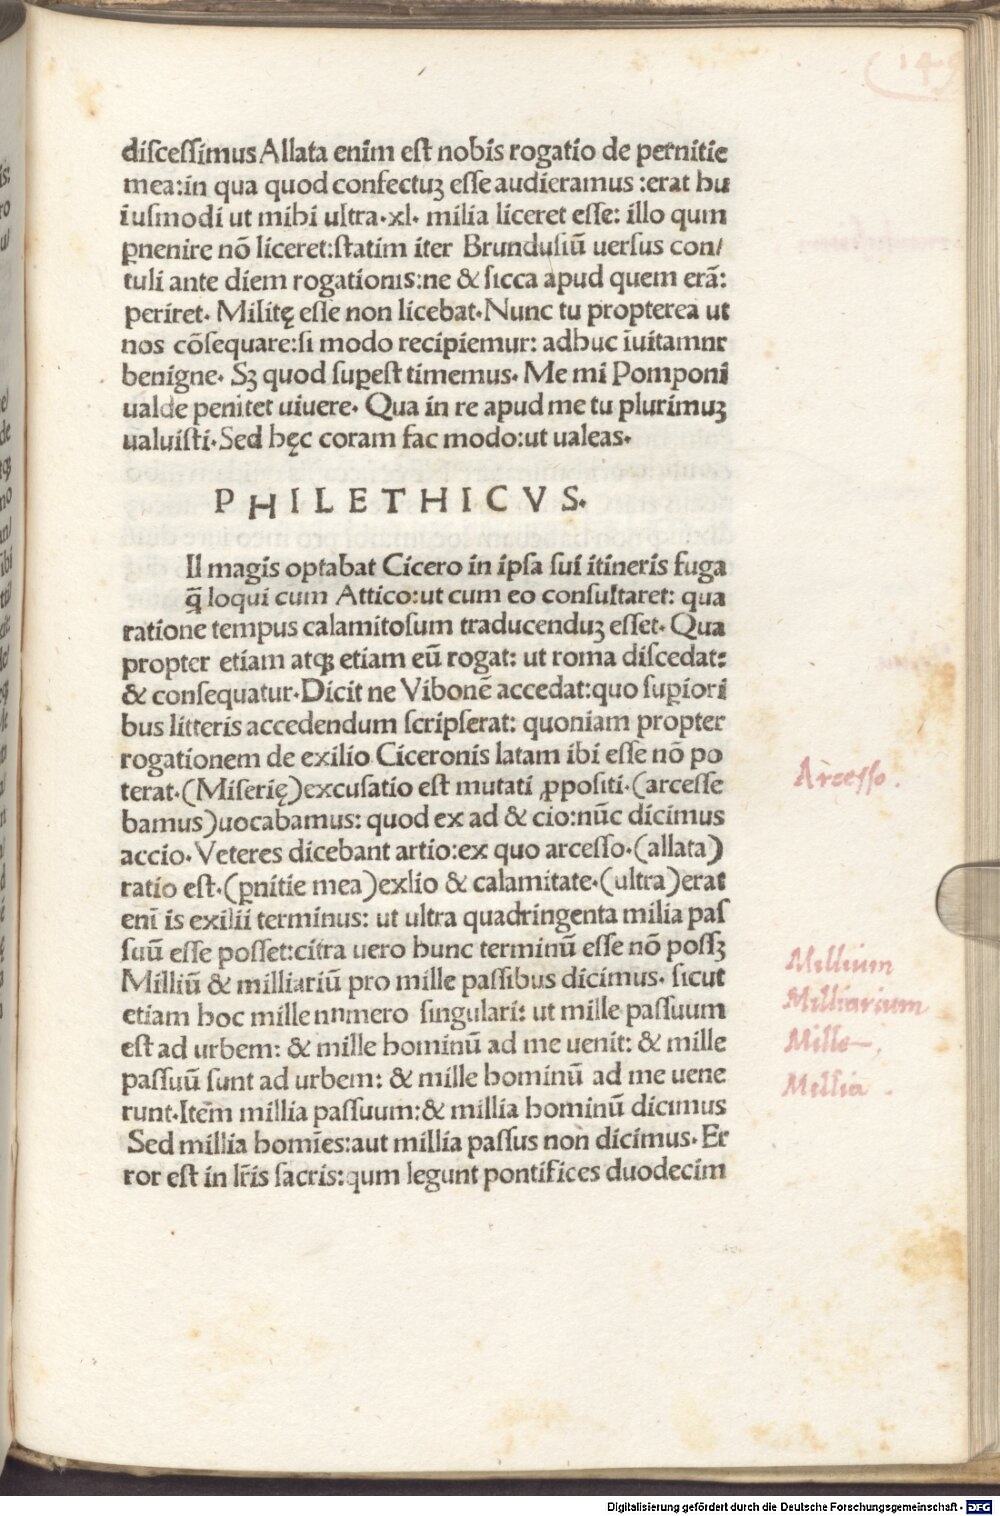 (149
discessimus Allata enim est nobis rogatio de pernitie
mea:in qua quod confectuꝫ esse audieramus :erat hu
iusmodi ut mihi ultra·xl· milia liceret esse: illo qum
ꝑuenire nō liceret:statim iter Brundusiū uersus con/
tuli ante diem rogationis:ne & sicca apud quem erā:
periret· Militę esse non licebat·Nunc tu propterea ut
nos cōsequare:si modo recipiemur: adhuc īuitamnr
benigne· Sꝫ quod suꝑest timemus· Me mi Pomponi
ualde penitet uiuere· Qua in re apud me tu plurimuꝫ
ualuisti·Sed hęc coram fac modo:ut ualeas·
PHILETHICVS·
Il magis optabat Cicero in ipsa sui itineris fuga
q̄ loqui cum Attico:ut cum eo consultaret: qua
ratione tempus calamitosum traducenduꝫ esset· Qua
propter etiam atqꝫ etiam eū rogat: ut roma discedat:
& consequatur·Dicit ne Vibonē accedat:quo suꝑiori
bus litteris accedendum scripserat: quoniam propter
rogationem de exilio Ciceronis latam ibi esse nō po
terat·(Miserię)excusatio est mutati ꝓpositi·(arcesse
bamus)uocabamus: quod ex ad & cio:nūc dicimus
accio· Veteres dicebant artio:ex quo arcesso·(allata)
ratio est·(ꝑnitie mea)exlio & calamitate·(ultra)erat
eni is exilii terminus: ut ultra quadringenta milia pas
suū esse posset:citra uero hunc terminū esse nō possꝫ
Milliū & milliariū pro mille passibus dicimus· sicut
etiam hoc mille nnmero singulari: ut mille passuum
est ad urbem: & mille hominū ad me uenit: & mille
passuū sunt ad urbem: & mille hominū ad me uene
runt·Item millia passuum:& millia hominū dicimus
Sed millia homīes:aut millia passus non dicimus· Er
ror est in lr̄is sacris:qum legunt pontifices duodecim
Arcesso.
Millium
Milliarium
Mille
Millia
Digitalisierung gefördert durch die Deutsche Forschungsgemeinschaft - DFG